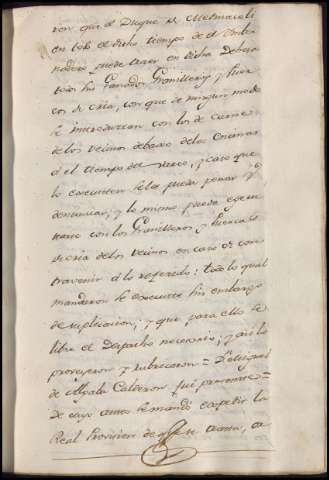 ron que el Duque de Medinaceli
en todo el dicho tiempo de el Inber
nadero puede traer en dicha Dehesa
todos sus Ganados Granilleros y huer
cos de cria, con que de ningun modo
se introduzcan con los de carne
de los vecinos debaxo de las encinas
a el tiempo del vareo, y caso que
lo executen se les pueda penar y
denunciar, y lo mismo pueda execu
tarse con los Granilleros, y huercos
de cria de los vecinos en caso de con
travenir a lo referido: todo lo qual
mandaron se execute sin embargo
de suplicacion, y que para ello se
libre el Despacho necesario; y asi lo
proveyeron y rubricaron =
de Ayala Calderon fui presente =
De cuyo auto se mandó expedir la
Real Provision de